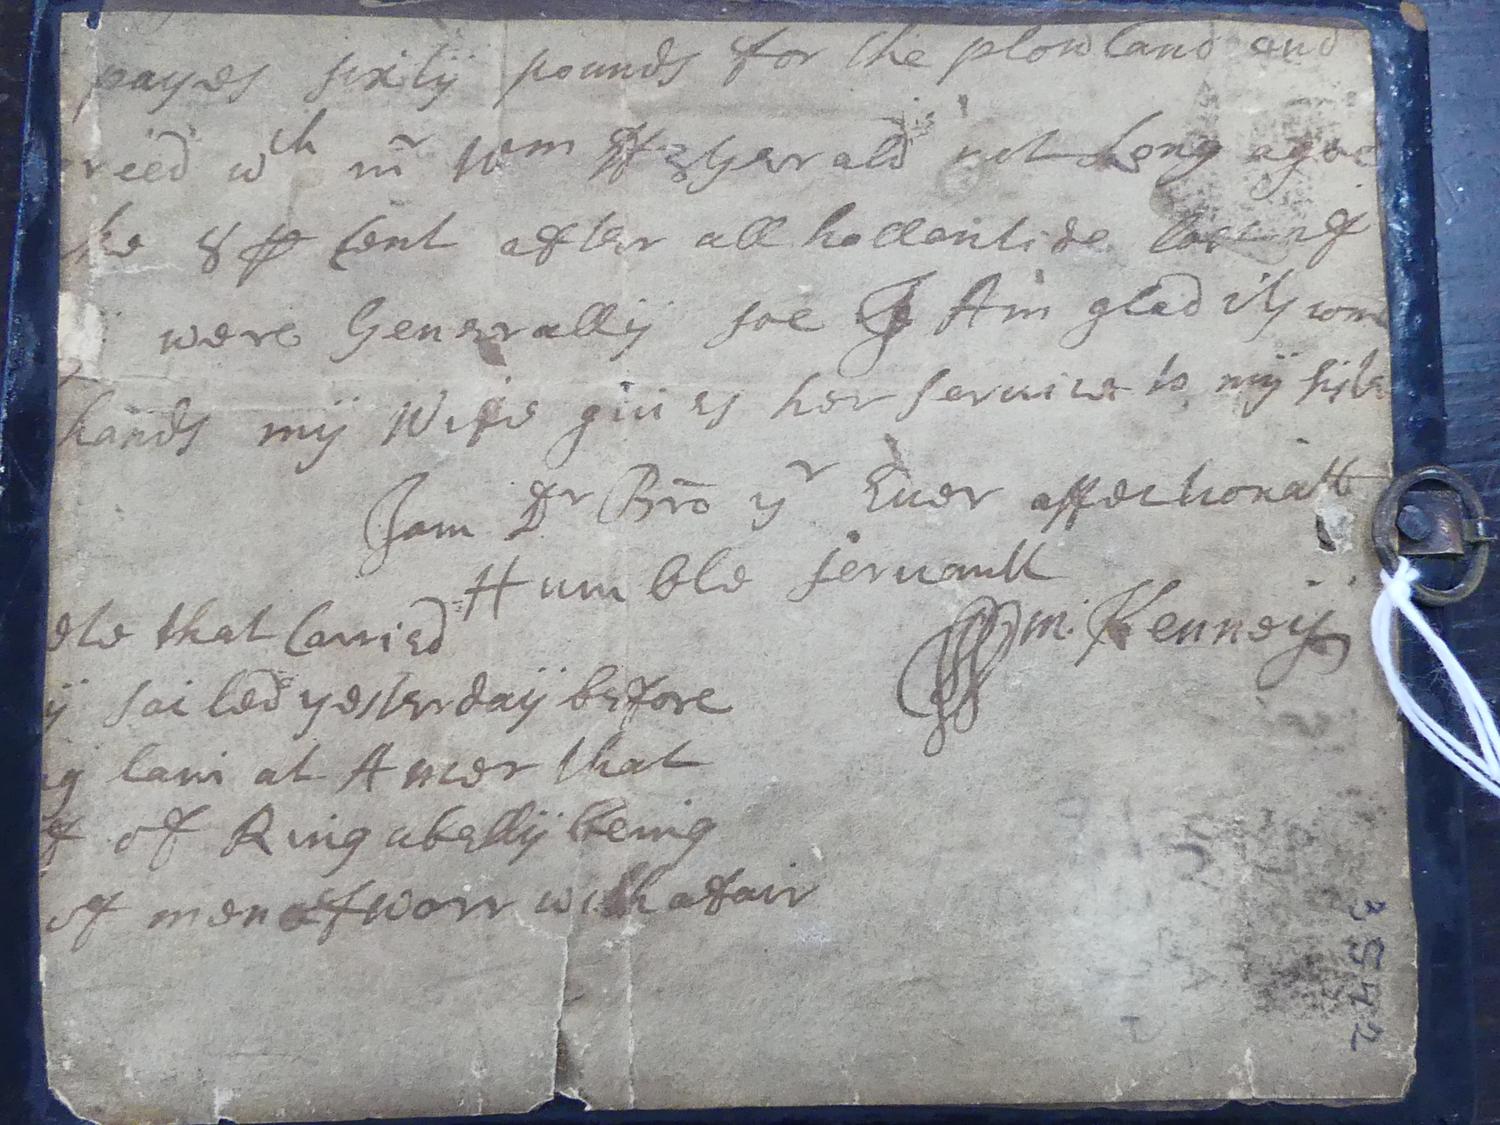 payes sixty pounds for the plowland and
reed wth mr Wm ffitzGerrald not Long agoe
he 8 ꝑ Cent after all hollentide
were Generally soe I Am glad its
hands my Wife giues her seruice to my sist
Iam Dr Bro yr Euer affectionatt
Humble seruantt
Wm. Kenney
ele that Carried
y sailed yesterday before
at Ancer that
of Ringabelly being
of men of warr with a fair
3942